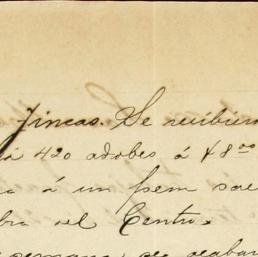 Fincas. Se recibiero
a 420 adobes á $8.00
a á un peon
bra del Centro.
semana se acabar